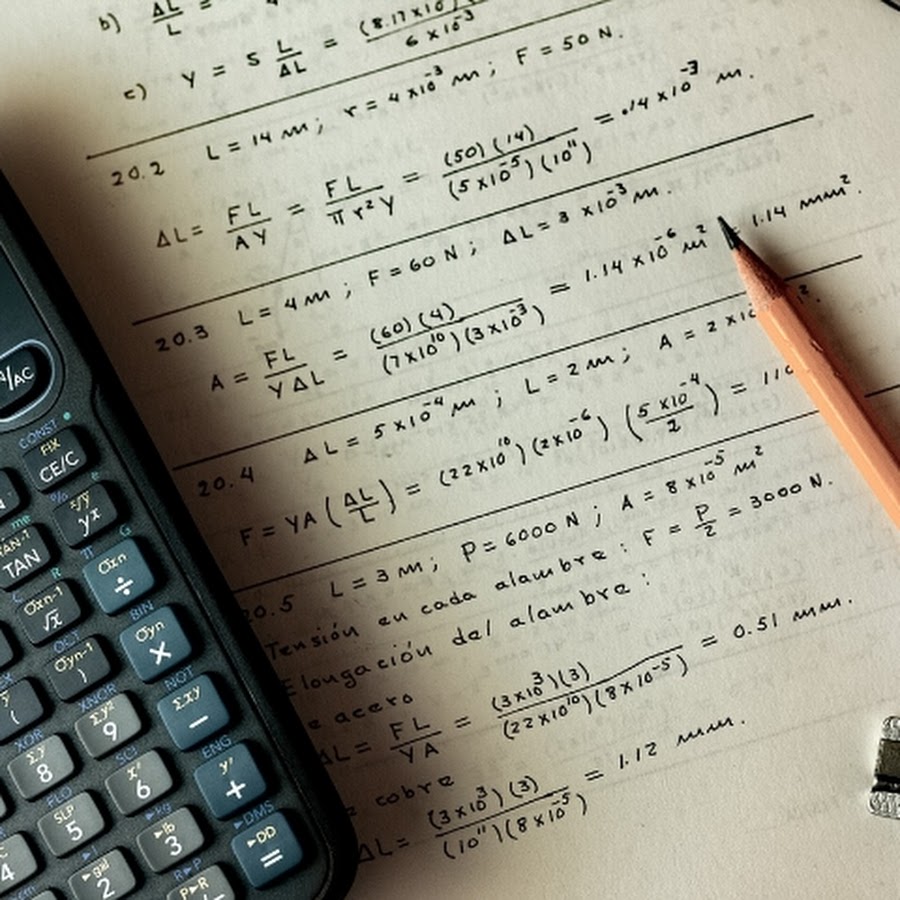 b) ΔL/L =
c) Y = S L/ΔL = (8.17×10 / 6×10⁻³
20.2 L = 14 m; r = 4×10⁻³ m; F = 50 N.
ΔL = FL/AY = FL/πr²Y = (50)(14)/(5×10⁻⁵)(10¹¹) = .14×10⁻³ m.
20.3 L = 4 m; F = 60 N; ΔL = 3×10⁻³ m.
A = FL/YΔL = (60)(4)/(7×10¹⁰)(3×10⁻³) = 1.14×10⁻⁶ m² = 1.14 mm².
20.4 ΔL = 5×10⁻⁴ m; L = 2 m; A = 2×10
F = YA(ΔL/L) = (22×10¹⁰)(2×10⁻⁶)(5×10⁻⁴/2) = 110
20.5 L = 3 m; P = 6000 N; A = 8×10⁻⁵ m²
Tensión en cada alambre: F = P/2 = 3000 N.
Elongación del alambre:
e acero
ΔL = FL/YA = (3×10³)(3)/(22×10¹⁰)(8×10⁻⁵) = 0.51 mm.
cobre
ΔL = (3×10³)(3)/(10¹¹)(8×10⁻⁵) = 1.12 mm.
/AC
CONST
FIX
CE/C
ⁿ√y
yˣ
TAN⁻¹
TAN
σxn
÷
σxn-1
√x
BIN
σyn
×
OCT
σyn-1
)
NOT
Σxy
−
XNOR
Σy²
9
(
XOR
Σy
8
SCI
x'
6
ENG
y'
+
FLO
SLP
5
▸lb
3
▸DMS
▸DD
=
4
▸gal
2
R▸P
P▸R